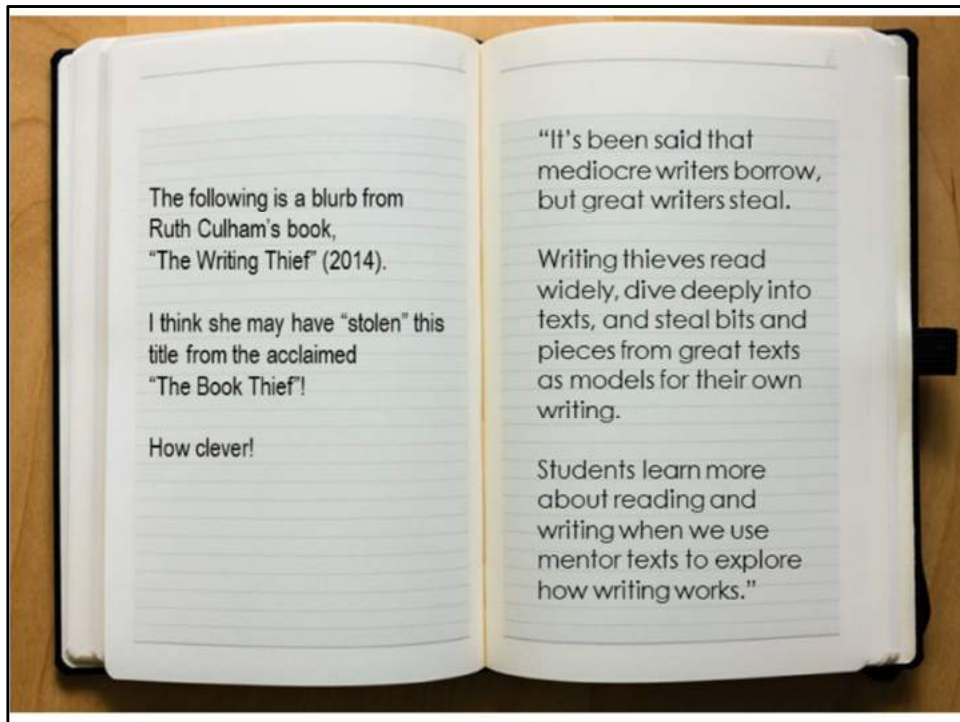 The following is a blurb from
Ruth Culham's book,
“The Writing Thief” (2014).
I think she may have “stolen” this
title from the acclaimed
“The Book Thief”!
How clever!
“It's been said that
mediocre writers borrow,
but great writers steal.
Writing thieves read
widely, dive deeply into
texts, and steal bits and
pieces from great texts
as models for their own
writing.
Students learn more
about reading and
writing when we use
mentor texts to explore
how writing works.”